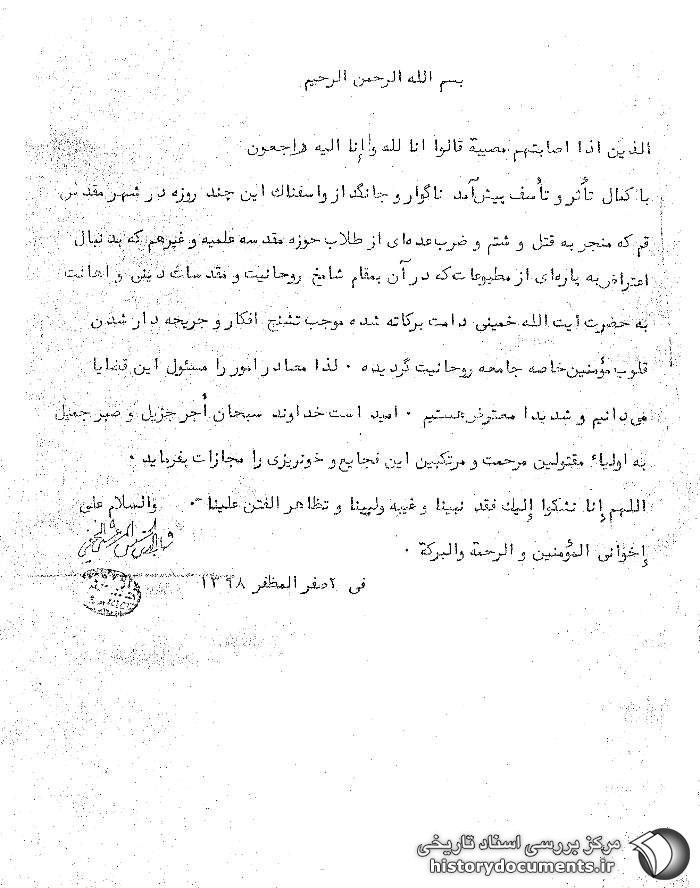 بسم الله الرحمن الرحیم
الذین اذا اصابتهم مصیبة قالوا انا لله وإنا الیه راجعون
با کمال تأثر و تأسف پیش‌آمد ناگوار و جانگداز واسفناک این چند روزه در شهر مقدس
قم که منجر به قتل و شتم و ضرب عده‌ای از طلاب حوزه مقدسه علمیه و غیرهم که بدنبال
اعتراض به پاره‌ای از مطبوعات که در آن بمقام شامخ روحانیت و مقدسات دینی و اهانت
به حضرت آیت الله خمینی دامت برکاته شده موجب تشنج افکار و جریحه دار شدن
قلوب مؤمنین خاصه جامعه روحانیت گردیده . لذا مصادر امور را مسئول این قضایا
می‌دانیم و شدیدا معترض هستیم . امید است خداوند سبحان أجر جزیل و صبر جمیل
به اولیاء مقتولین مرحمت و مرتکبین این فجایع و خونریزی را مجازات بفرماید .
اللهم إنا نشکوا إلیک فقد نبینا و غیبه ولینا و تظاهر الفتن علینا . والسلام علی
إخوانی المؤمنین و الرحمة والبرکة .
شهاب الدین الحسینی المرعشی النجفی
فی ۲ صفر المظفر ۱۳۹۸
مرکز بررسی اسناد تاریخی
historydocuments.ir